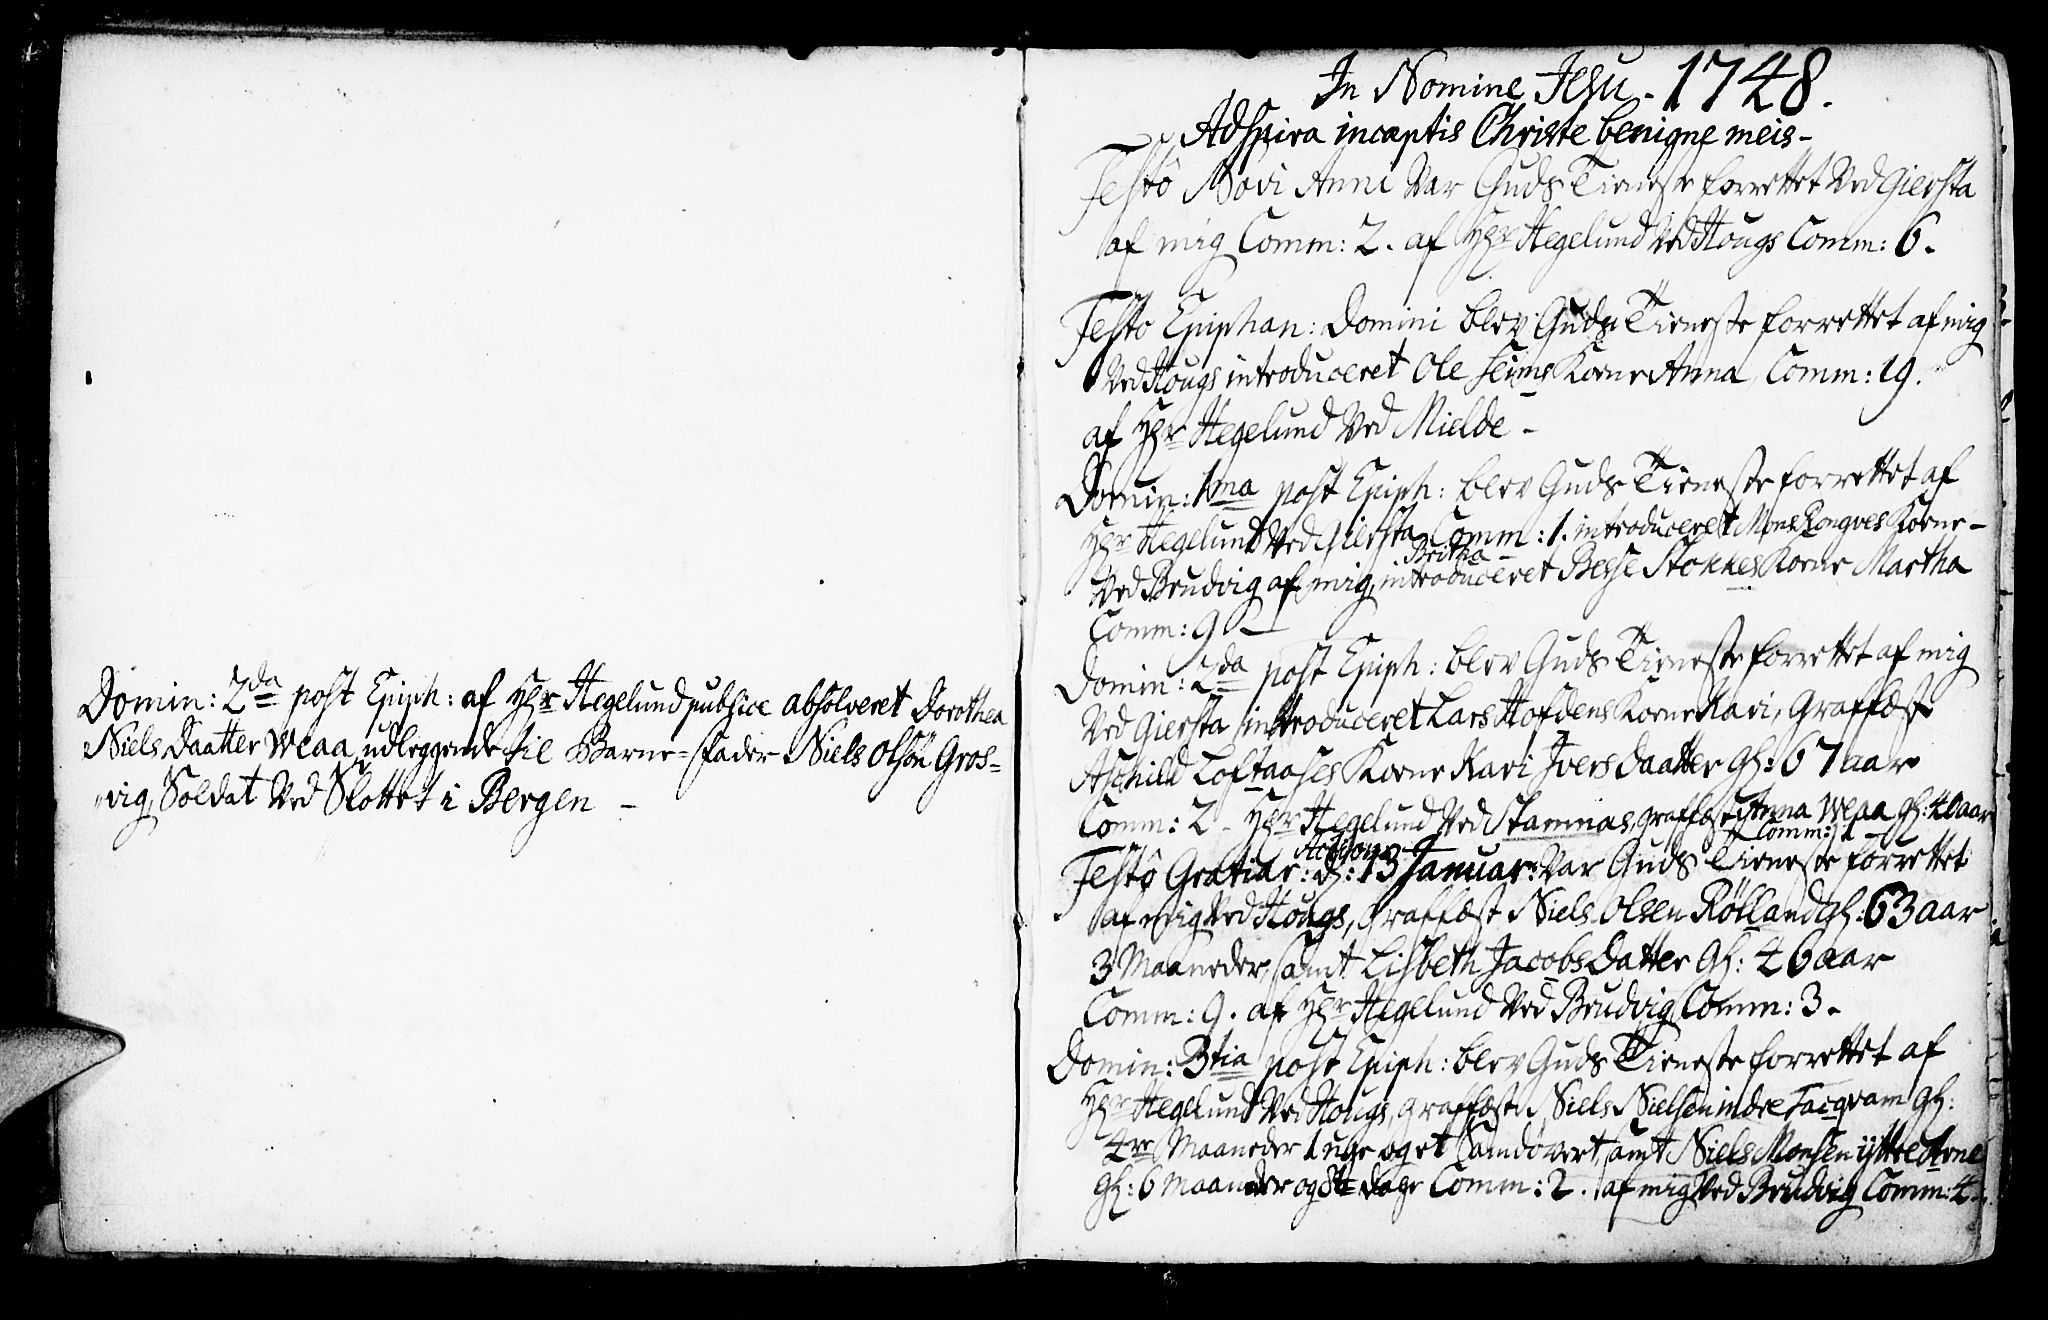 Domin: 2da post Epiph: af Hr Hegelund publice absolveret Dorothea
Niels Daatter Weaa, udleggende til Barne-fader Niels Olsön Gros-
vig, Soldat ved Slottet i Bergen -
In Nomine Jesu - 1748.
Adspira incæptis Christe benigne meis -
Festô Novi Anni var Guds Tieneste forrettet ved Giersta
af mig Comm: 2. af Hr Hegelund ved Hougs Comm: 6.
Festo Epiphan: Domini blev Guds Tieneste forrettet af mig
ved Hougs introduceret Ole Seims Kone Anna, Comm: 19.
af Hr Hegelund ved Mielde -
Domin: 1ma post Epiph: blev Guds Tieneste forrettet af
Hr Hegelund ved Giersta Comm: 1. introduceret Mons Rongves Kone -
Britha -
ved Brudvig af mig, introduceret Besse Stokkes Kone Martha
Comm: 9 -
Domin: 2da post Epiph: blev Guds Tieneste forrettet af mig
ved Giersta introduceret Lars Hofdens Kone Kari, Graffæst
Aschild Loftaases Kone Kari Ivers Daatter Gl: 67 aar
Comm: 2 - Hr Hegelund ved Stamnas, graffæst Anna Weaa Gl: 40 aar
Comm: 1 -
Festô Gratiar: Action: d: 13 Januar: var Guds Tieneste forrettet
af mig ved Hougs, Graffæst Niels Olsen Rölland gl: 63 aar
3 Maaneder, samt Lisbeth Jacobs Datter Gl: 46 aar
Comm: 9. af Hr Hegelund ved Brudvig Comm: 3.
Domin: 3tia post Epiph: blev Guds Tieneste forrettet af
Hr Hegelund ved Hougs, graffæst Niels Nielsen indre Jacqvam Gl:
4re Maaneder 1 uge og et samt Niels Monsen ÿttre Arne
gl: 6 Maaneder og dage Comm: 2. af mig ved Brudvig Comm: 4.